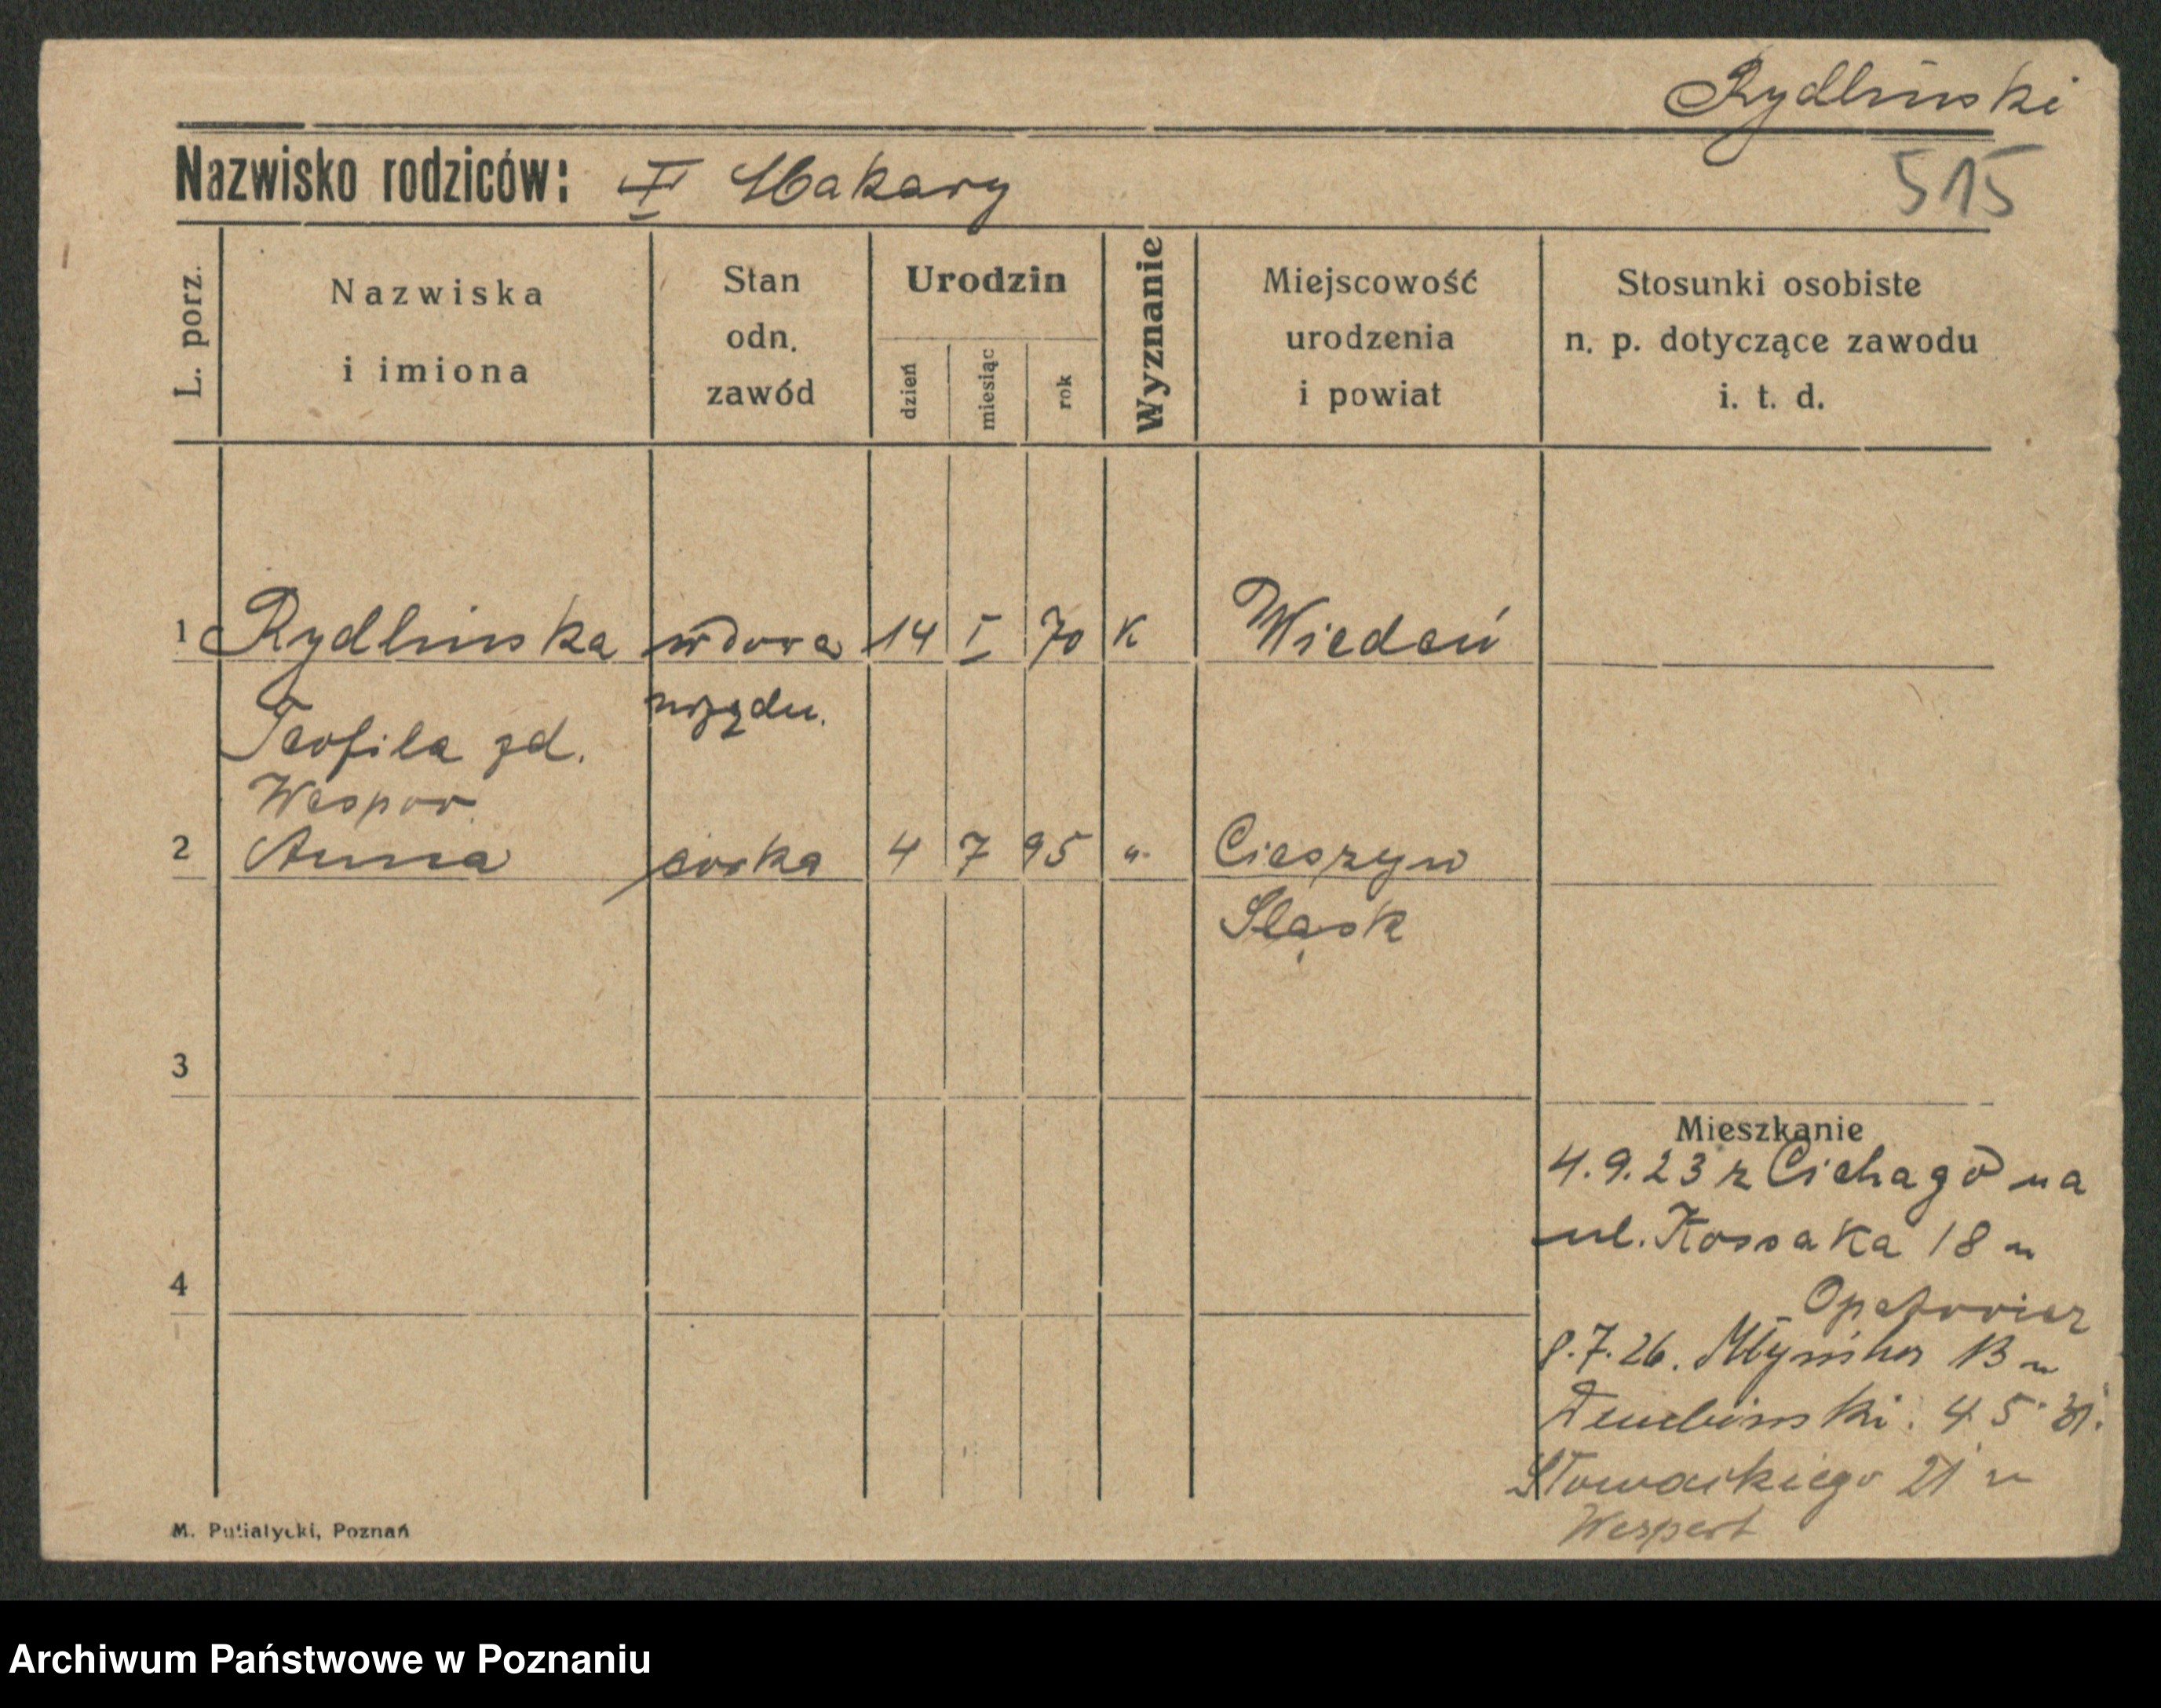 Rydlinski
Nazwisko rodziców: I Makary
515
L. porz.
Nazwiska
i imiona
Stan
odn.
zawód
Urodzin
dzień
miesiąc
rok
Wyznanie
Miejscowość
urodzenia
i powiat
Stosunki osobiste
n. p. dotyczące zawodu
i. t. d.
1 Rydlinska wdowa 14 I 70 K Wiedeń
Teofila zd. urzędn.
Wespor.
2 Anna córka 4 7 95 " Cieszyn
Śląsk
3
4
Mieszkanie
4.9.23 z Cichego na
ul. Kossaka 18 u
8.7.26. Młyńska 13 u
Dembinski. 4 5 31.
Słowackiego 21 u
Wespert
M. Putiatycki, Poznań
Archiwum Państwowe w Poznaniu